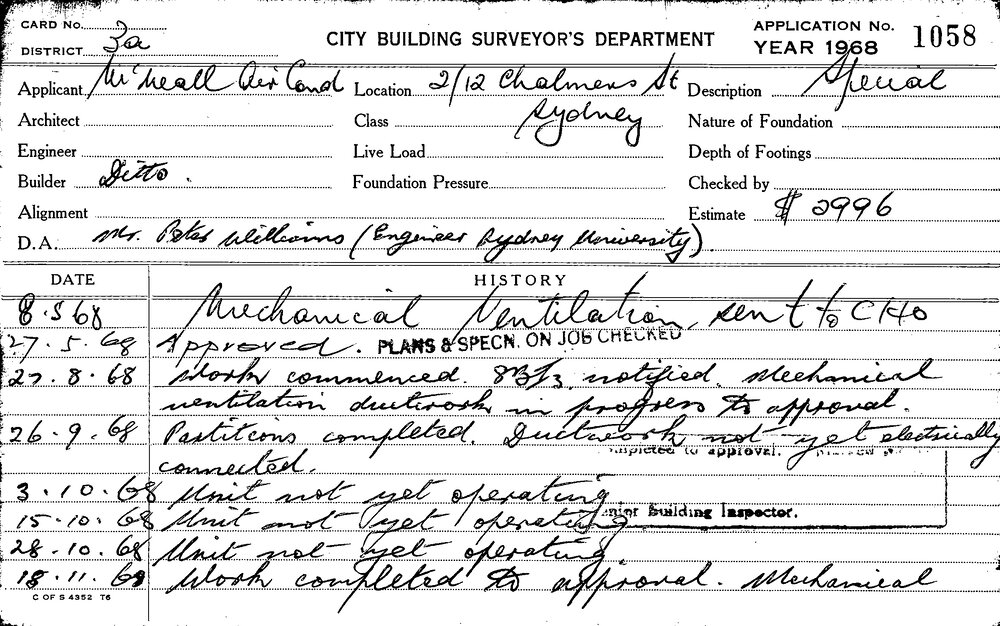 CARD No.
DISTRICT 3a
CITY BUILDING SURVEYOR'S DEPARTMENT
APPLICATION No. 1058
YEAR 1968
Applicant McNeall Air Cond Location 2/12 Chalmers St Description Special
Architect Class Sydney Nature of Foundation
Engineer Live Load Depth of Footings
Builder Ditto. Foundation Pressure Checked by
Alignment Estimate $ 2996
D.A. Mr. Peter Williams (Engineer Sydney University)
DATE HISTORY
8.5 68 Mechanical Ventilation, sent to CHO
27.5.68 Approved. PLANS & SPECN. ON JOB CHECKED
27.8.68 Work commenced. notified. Mechanical
ventilation ductwork in progress to approval.
26.9.68 Partitions completed. Ductwork not yet electrically
completed to approval.
connected.
3.10.68 Unit not yet operating.
15.10.68 Unit not yet operating
Senior Building Inspector.
28.10.68 Unit not yet operating.
18.11.68 Work completed to approval. Mechanical
C OF S 4352 T6